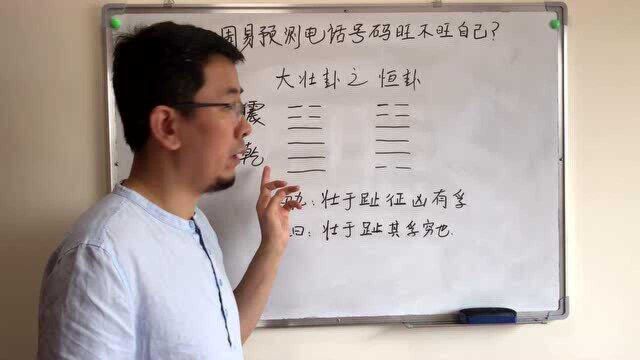 周易预测电话号码旺不旺自己?
大壮卦之恒卦
震
乾
壮于趾征凶有孚
曰:壮于趾其孚穷也